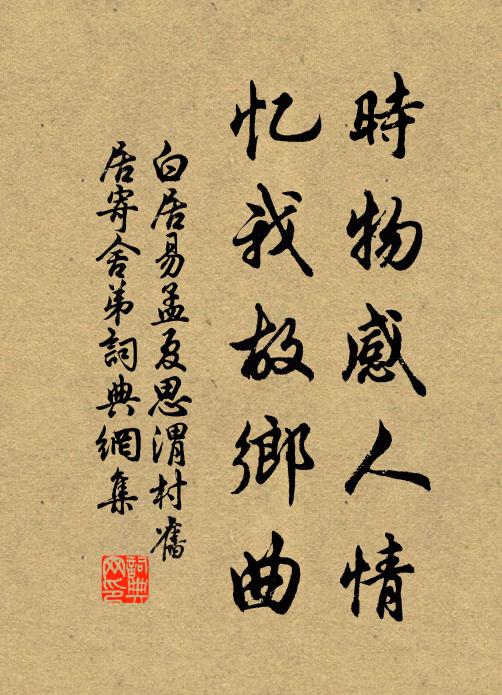 時物感人情
忆我故鄉曲
白居易孟夏思渭村舊
居寄舍弟詞典網集
詞典
网印